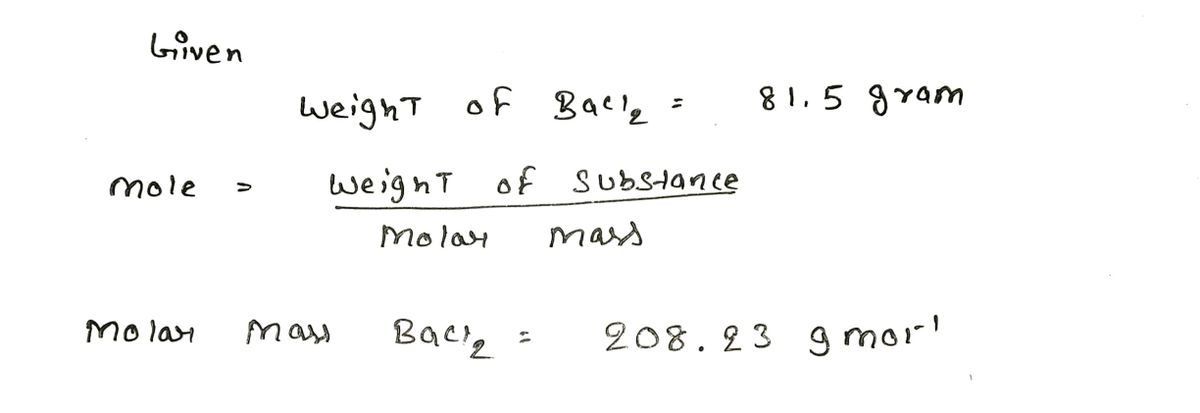 Given
Weight of BaCl₂ = 81.5 gram
mole = Weight of Substance
Molar mass
Molar mass BaCl₂ = 208.23 g mol⁻¹